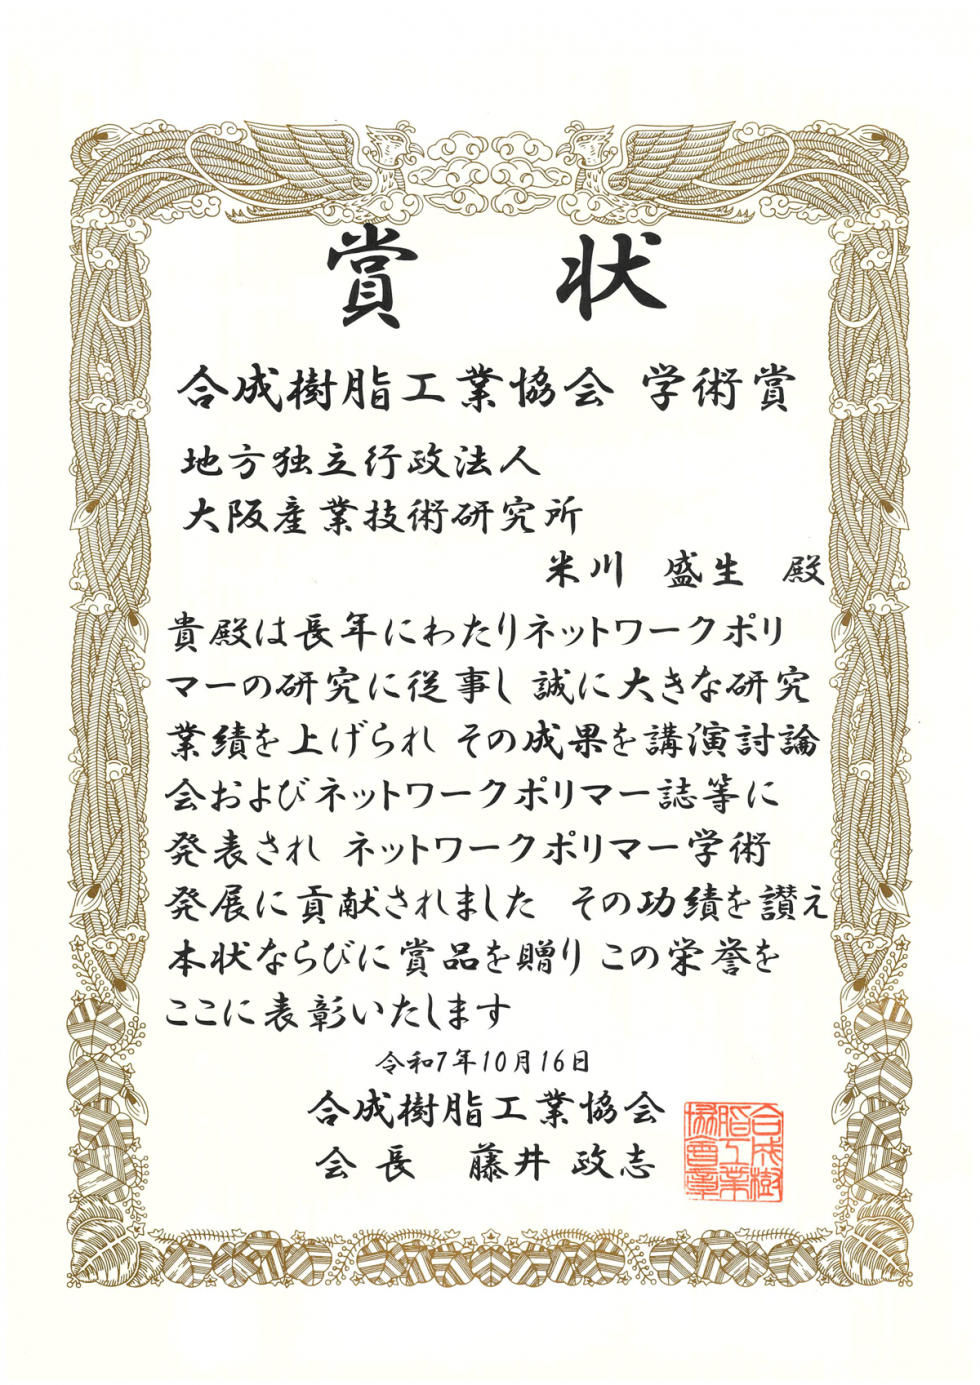 賞 状
合成樹脂工業協会 学術賞
地方独立行政法人
大阪産業技術研究所
米川 盛生 殿
貴殿は長年にわたりネットワークポリ
マーの研究に従事し 誠に大きな研究
業績を上げられ その成果を講演討論
会およびネットワークポリマー誌等に
発表され ネットワークポリマー学術
発展に貢献されました その功績を讃え
本状ならびに賞品を贈り この栄誉を
ここに表彰いたします
令和7年10月16日
合成樹脂工業協会
会長 藤井 政志
合成樹
脂工業
協會章